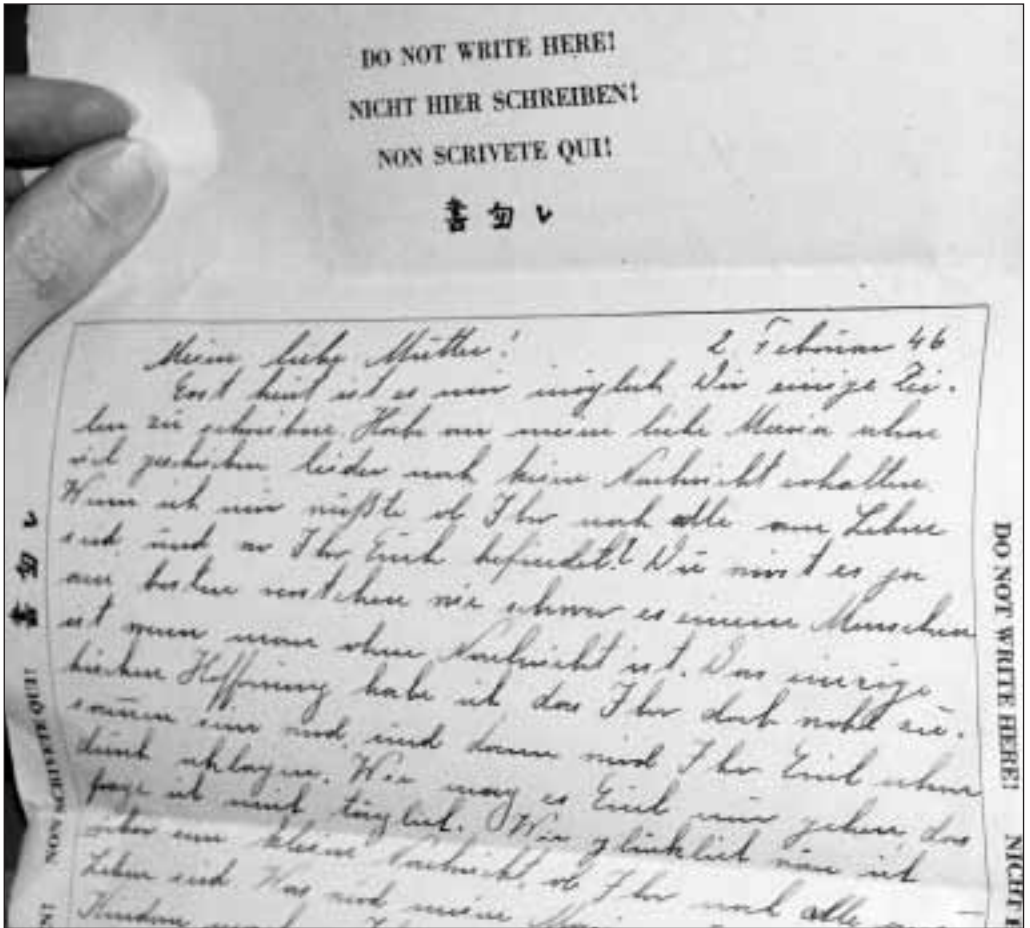 DO NOT WRITE HERE!
NICHT HIER SCHREIBEN!
NON SCRIVETE QUI!
書勿レ
Meine liebe Mutter! 2. Februar 46
Erst heut ist es mir möglich Dir einige Zei-
len zu schreiben. Habe an meine liebe Maria schon
viel geschrieben leider noch keine Nachricht erhalten.
Wenn ich nur wüßte ob Ihr noch alle am Leben
seid, und wo Ihr Euch befindet! Du wirst es ja
am besten verstehen wie schwer es einem Menschen
ist wenn man ohne Nachricht ist. Das einzige
bischen Hoffnung habe ich das Ihr doch wohl zu-
sammen sein und dann Ihr Euch schon
durch schlagen. Wie mag es Euch nur gehen, das
frage ich mich täglich. Wie glücklich wär ich
über eine kleine Nachricht, ob Ihr noch alle am
Leben seid. Was wird meine
Kindern
書勿レ
NON SCRIVETE QUI!
DO NOT WRITE HERE!
NICHT